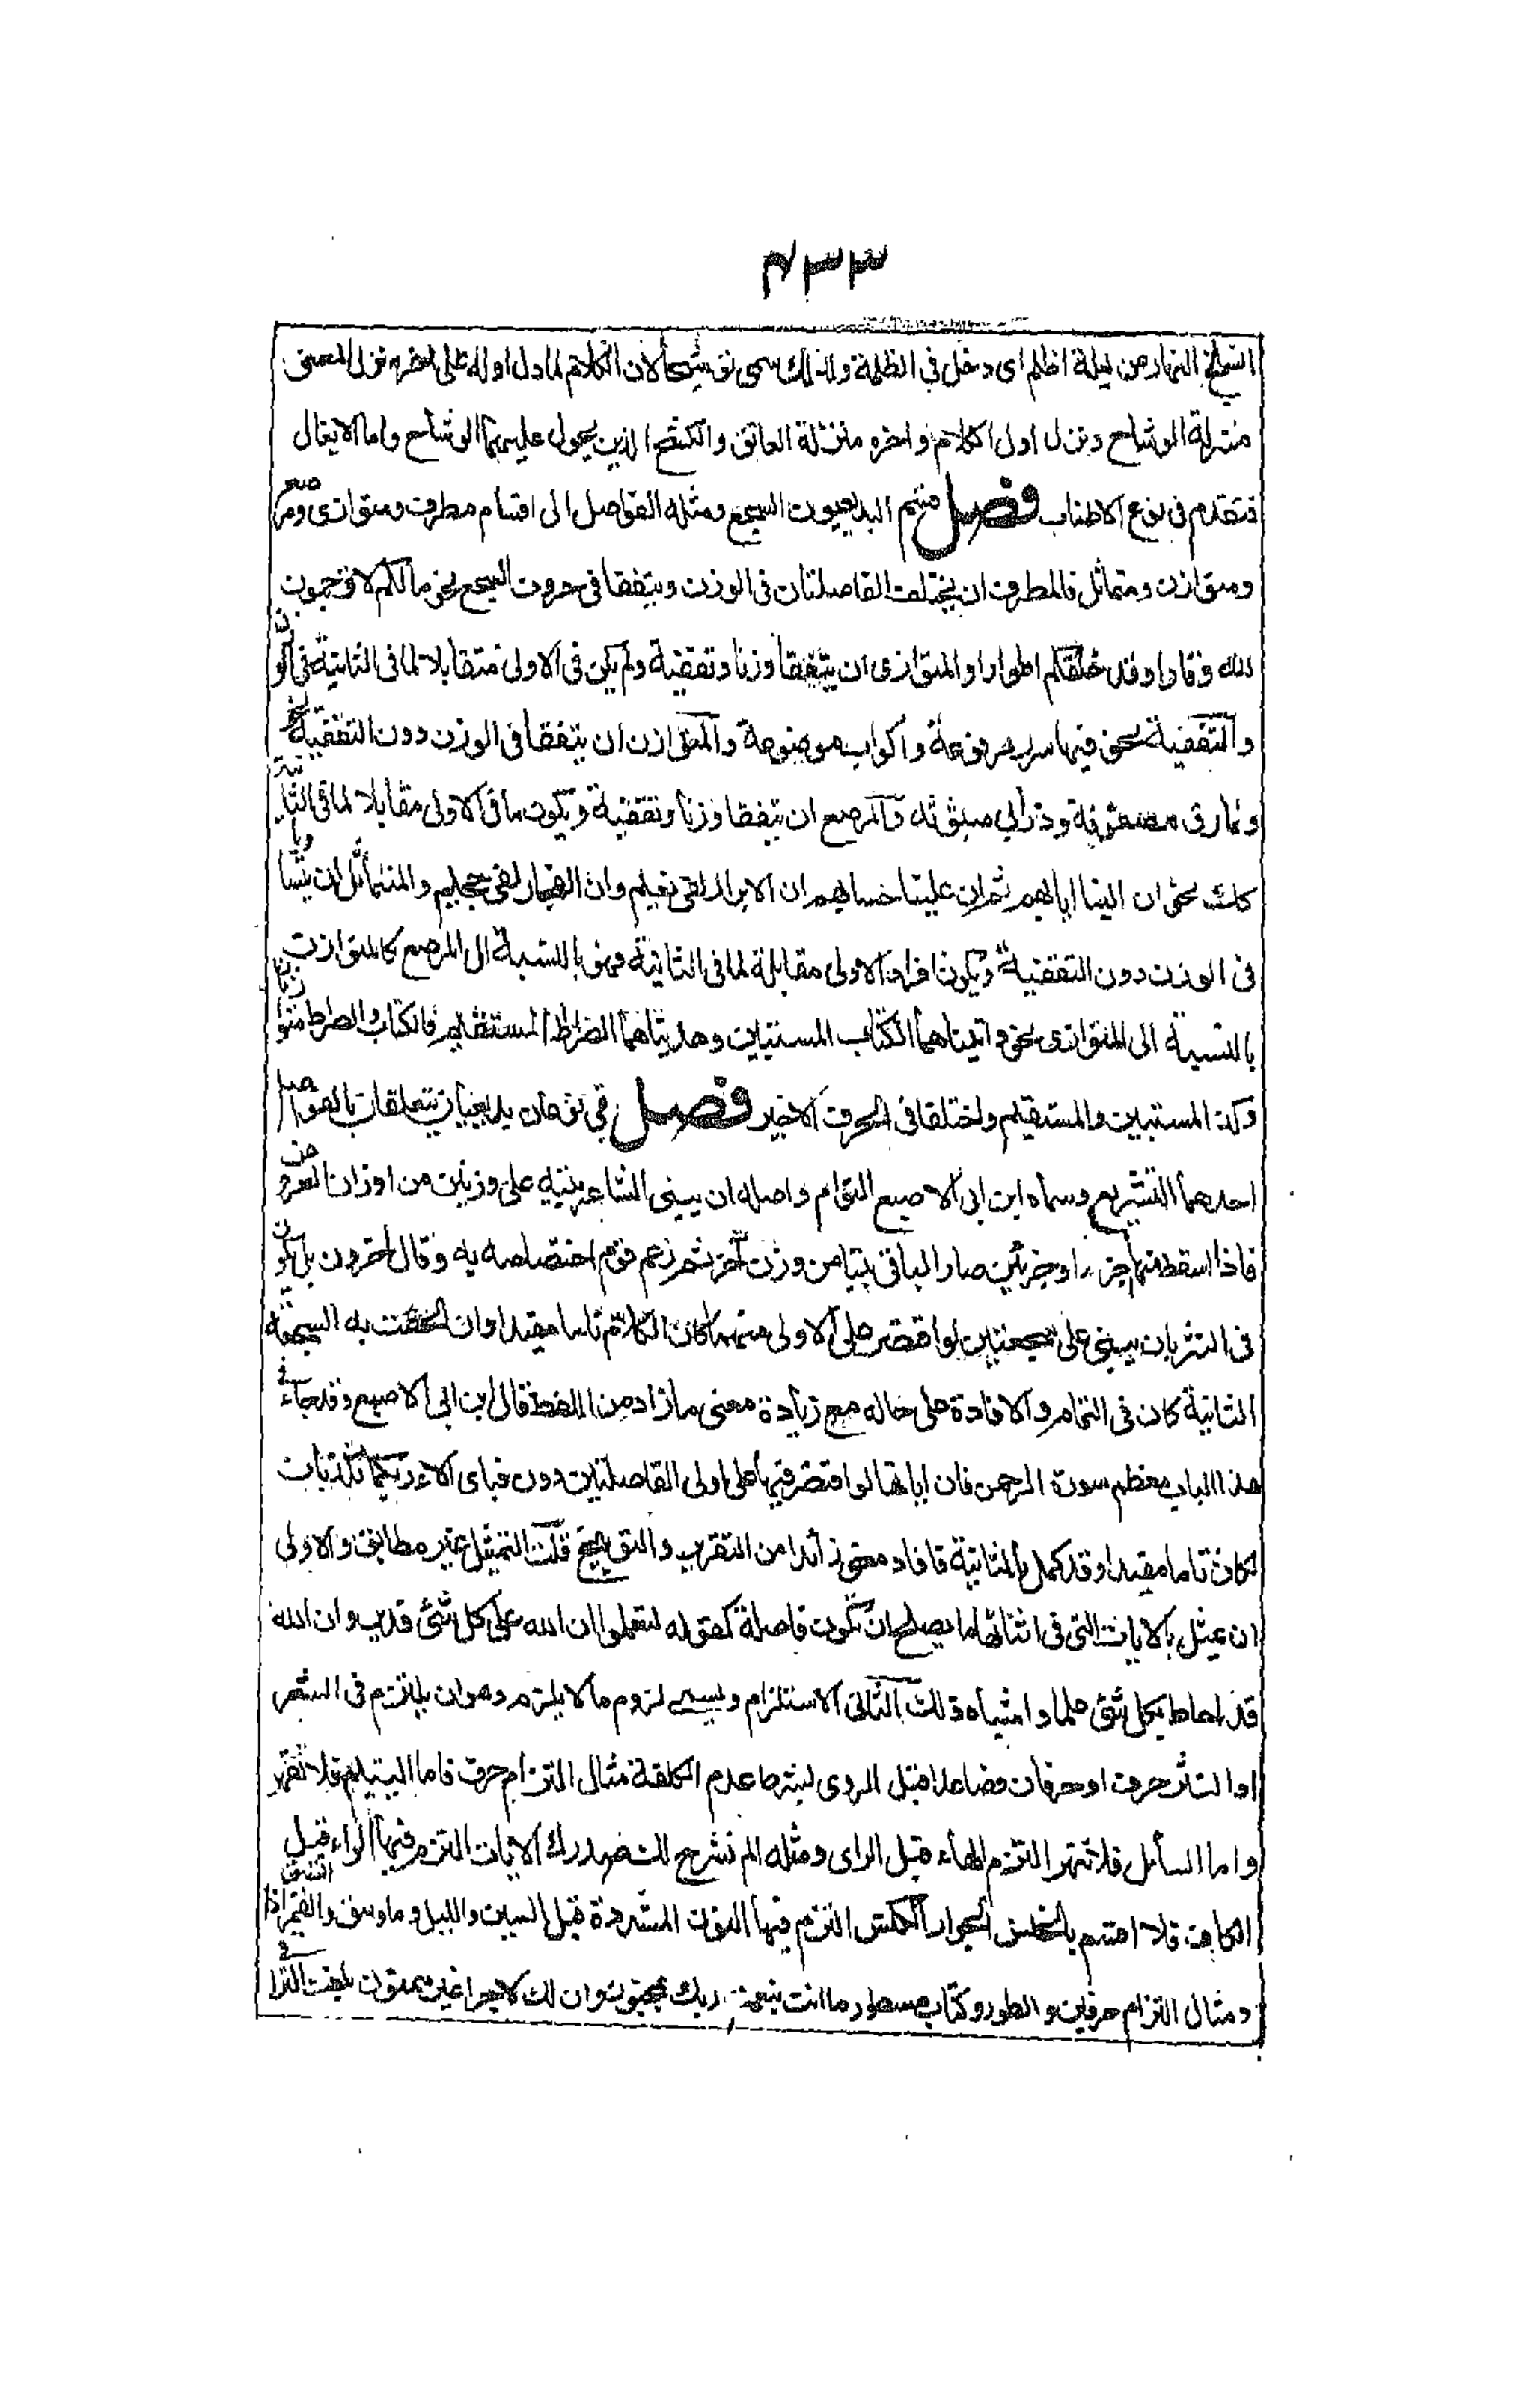 ٤٣٣
انسلخ النهار من ليلة اظلم اى دخل فى الظلمة ولذلك سمى توشيحا لان الكلام لما دل اوله على اخره نزل المعنى
منزلة الوشاح ونزل اول الكلام واخره منزلة العاتق والكشح الذين يحول عليهما الوشاح واما الايغال
فتقدم فى نوع الاطناب فصل قسم البديعيون السجع ومثله الفواصل الى اقسام مطرف ومتوازى ومرصع
ومتوازن ومتماثل فالمطرف ان يختلف الفاصلتان فى الوزن ويتفقا فى حروف السجع نحو مالكم لا ترجون
لله وقارا وقد خلقكم اطوارا والمتوازى ان يتفقا وزنا وتقفية ولم يكن فى الاولى متقابلا لما فى الثانية فى الوزن
والتقفية نحو فيها سرر مرفوعة واكواب موضوعة والمتوازن ان يتفقا فى الوزن دون التقفية نحو
ونمارق مصفوفة وذرابي مبثوثه والمرصع ان يتفقا وزنا وتقفية ويكون ما فى الاولى مقابلا لما فى الثانية
كذلك نحو ان الينا ايابهم ثم ان علينا حسابهم ان الابرار لفى نعيم وان الفجار لفى جحيم والمتماثل ان يتساويا
فى الوزن دون التقفية ويكون افراد الاولى مقابلة لما فى الثانية فهو بالنسبة الى المرصع كالمتوازن
بالنسبة الى المتوازى نحو واتيناهما الكتاب المستبين وهديناهما الصراط المستقيم فالكتاب والصراط متوازنان
وكذا المستبين والمستقيم واختلفا فى الحرف الاخير فصل بقى نوعان بديعيان يتعلقان بالفواصل
احدهما التشريع وسماه ابن ابى الاصبع التوام واصله ان يبنى الشاعر بيته على وزنين من اوزان العروض
فاذا اسقط منها جزءا وجزئين صار الباقى بيتا من وزن آخر ثم زعم قوم اختصاصه به وقال اخرون بل يكون
فى النثر بان يبنى على سجعتين لو اقتصر على الاولى منهما كان الكلام تاما مفيدا وان الحقت به السجعة
الثانية كان فى التمام والافادة على حاله مع زيادة معنى ما زاد من اللفظ قال ابن ابى الاصبع وقد جاء فى
هذا الباب معظم سورة الرحمن فان اياتها لو اقتصر فيها على اولى الفاصلتين دون فباى الاء ربكما تكذبان
لكان تاما مفيدا وقد كمل بالثانية فافاد معنى زائدا من التقرير والتوبيخ قلت التمثيل غير مطابق والاولى
ان يمثل بالايات التى فى اثنائها ما يصلح ان تكون فاصلة كقوله لتعلموا ان الله على كل شئ قدير وان الله
قد احاط بكل شئ علما واشباه ذلك الثانى الاستلزام ويسمى لزوم ما لا يلزم وهو ان يلتزم فى الشعر
او النثر حرف او حرفان فصاعدا قبل الروى بشرط عدم الكلفة مثال التزام حرف فاما اليتيم فلا تقهر
واما السائل فلا تنهر التزم الهاء قبل الراى ومثله الم نشرح لك صدرك الايات التزم فيها الراء قبل
الكاف فلا اقسم بالخنس الجوار الكنس التزم فيها النون المشددة قبل السين والليل وما وسق والقمر اذا اتسق
ومثال التزام حرفين والطور وكتاب مسطور ما انت بنعمة ربك بمجنون وان لك لاجرا غير ممنون بلغت التراقى